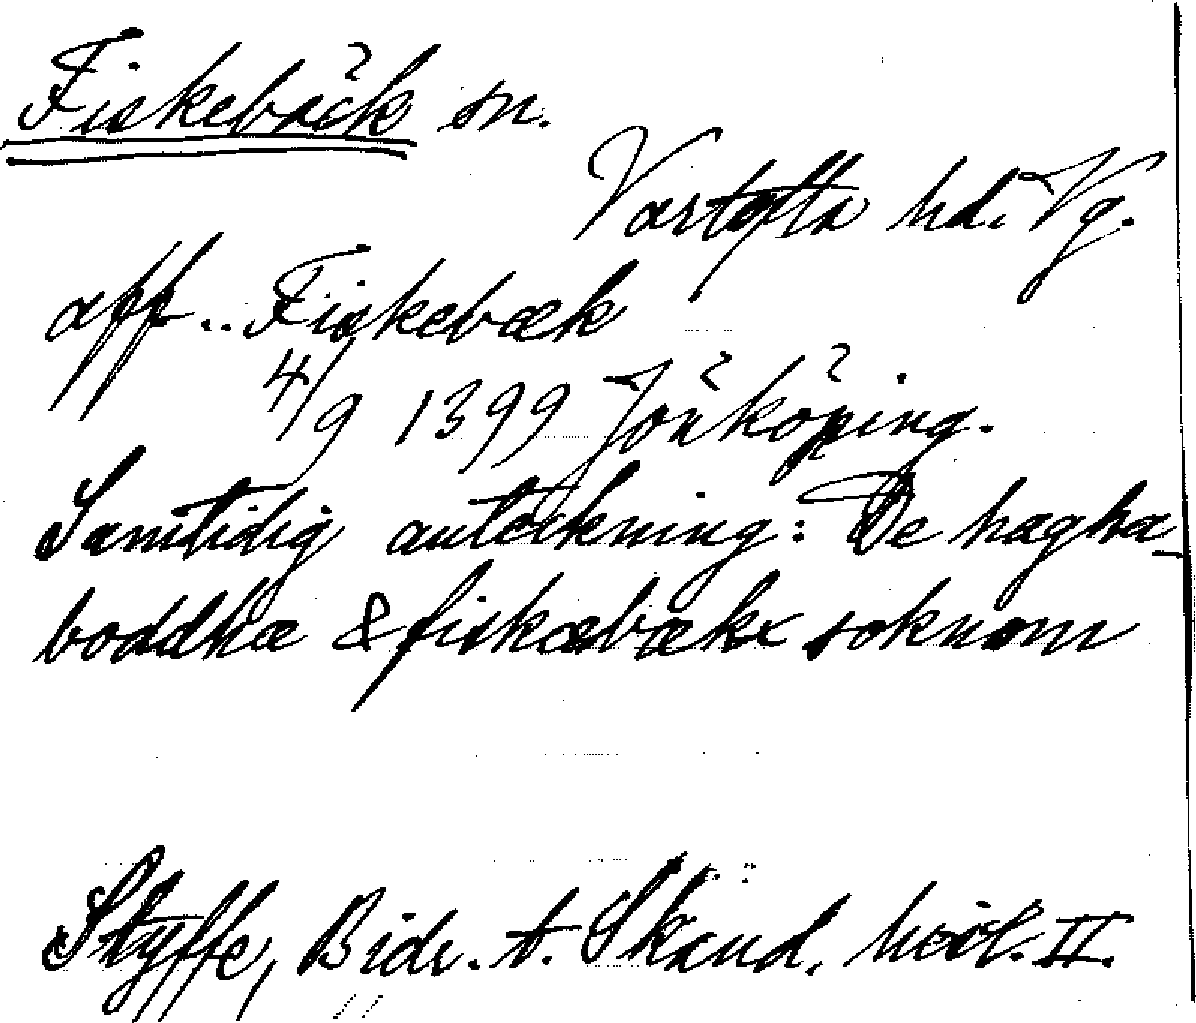 Fiskebäck sn.
Vartofta hd. Vg.
aff .. Fiskebæk
4/9 1399 Jönköping.
Samtidig anteckning: De hagha-
boddhæ & fiskæbækx soknom
Styffe, Bidr. t. Skand. hist. II.